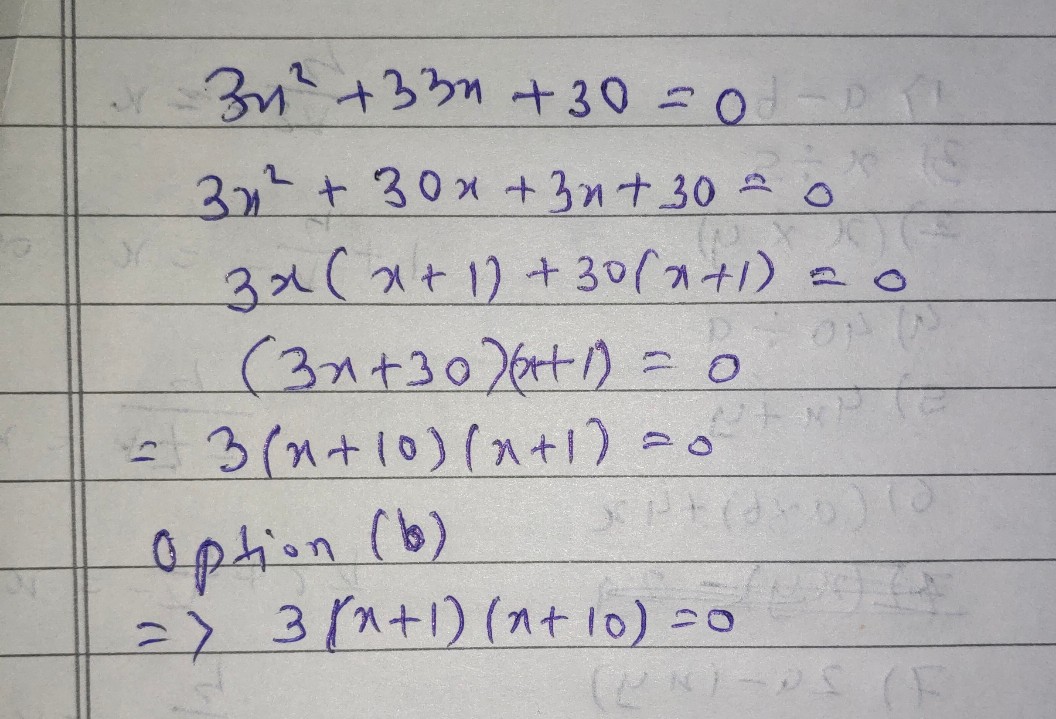 3x² + 33x + 30 = 0
3x² + 30x + 3x + 30 = 0
3x(x + 1) + 30(x + 1) = 0
(3x + 30)(x + 1) = 0
= 3(x + 10)(x + 1) = 0
Option (b)
=> 3(x + 1)(x + 10) = 0